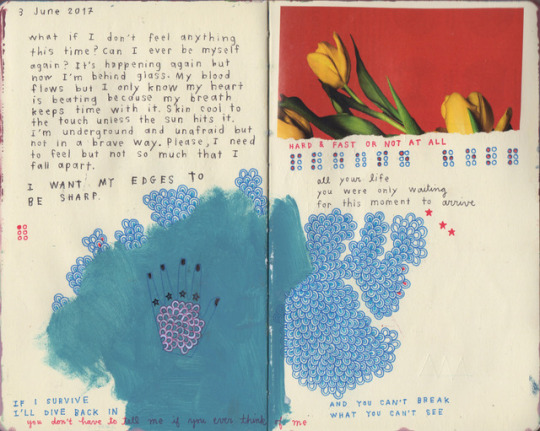 3 June 2017
what if I don't feel anything
this time? Can I ever be myself
again? It's happening again but
now I'm behind glass. My blood
flows but I only know my heart
is beating because my breath
keeps time with it. Skin cool to
the touch unless the sun hits it.
I'm underground and unafraid but
not in a brave way. Please, I need
to feel but not so much that I
fall apart.
I WANT MY EDGES TO
BE SHARP.
IF I SURVIVE
I'LL DIVE BACK IN
you don't have to tell me if you ever think of me
HARD & FAST OR NOT AT ALL
all your life
you were only waiting
for this moment to arrive
AND YOU CAN'T BREAK
WHAT YOU CAN'T SEE